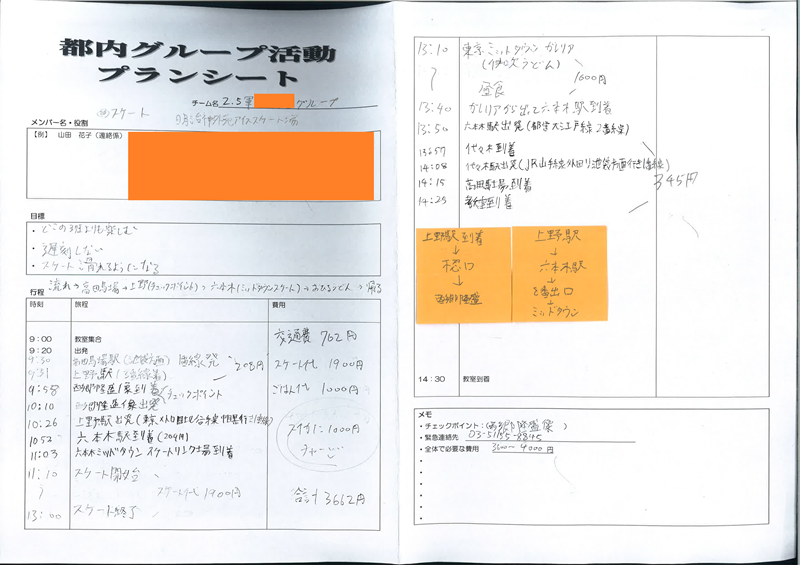 都内グループ活動
プランシート
チーム名 2.5軍 グループ
スケート
メンバー名・役割
【例】 山田 花子(連絡係)
目標
・どこの班よりも楽しむ
・遅刻しない
・スケート滑れるようになる
行程
流れ 高田馬場→上野(チェックポイント)→六本木(ミッドタウンスケート)→おひるうどん→帰る
時刻 旅程 費用
9:00 教室集合 交通費 762円
9:20 出発
9:30 高田馬場駅 発 208円 スケート代 1900円
上野駅
9:58 西郷隆盛像到着 チェックポイント ごはん代 1000円
10:10 西郷隆盛像出発
10:26 上野駅出発(東京メトロ日比谷線中目黒行 ) スイカに1000円
10:52 六本木駅到着(209円) チャージ
11:03 六本木ミッドタウンスケートリンク場到着
11:10 スケート開始
スケート代 1900円 合計3662円
13:00 スケート終了
13:10 東京ミッドタウン ガレリア
うどん) 1000円
昼食
13:40 ガレリアから出て六本木駅到着
13:50 六本木駅出発(都営大江戸線2番線)
13:57 代々木到着
14:08 代々木駅出発(JR山手線外回り池袋方面行き
14:15 高田馬場到着 345円
14:25 教室到着
上野駅到着
↓
↓
上野駅
↓
六本木駅
↓
8番出口
↓
ミッドタウン
14:30 教室到着
メモ
・チェックポイント:(西郷隆盛像 )
・緊急連絡先 03-5155-8845
・全体で必要な費用 3600~4000円